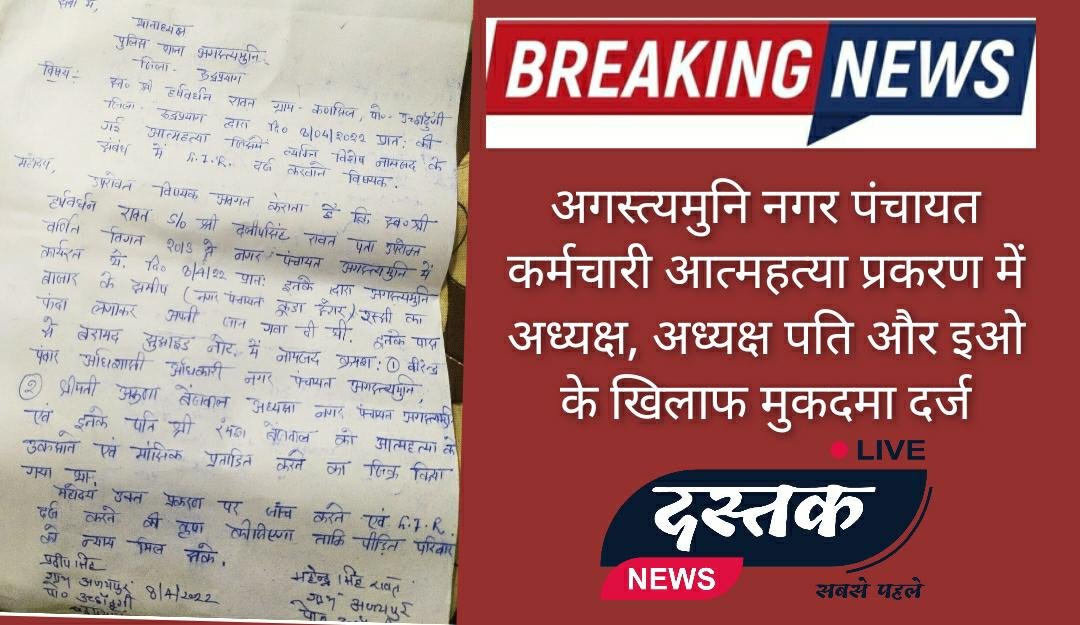 सेवा में,
थानाध्यक्ष
पुलिस थाना अगस्त्यमुनि
जिला - रुद्रप्रयाग
विषय:- स्व० श्री हर्षवर्धन रावत ग्राम - पो०-
जिला - रुद्रप्रयाग द्वारा दि० 8/04/2022 प्रातः की
गई आत्महत्या जिसमें व्यक्ति विशेष नामजद के
संबंध में F.I.R. दर्ज करवाने विषयक.
महोदय,
उपरोक्त विषयक अवगत कराना है कि स्व० श्री
हर्षवर्धन रावत S/o श्री रावत पता उपरोक्त
वर्णित विगत 2013 से नगर पंचायत अगस्त्यमुनि में
कार्यरत थे. दि० 8/4/22 प्रातः इनके द्वारा अगस्त्यमुनि
बाजार के समीप (नगर पंचायत कूडा ) रस्सी का
फंदा लगाकर अपनी जान गवा दी थी. इनके पास
से बरामद सुसाइड नोट में नामजद क्रमश: ① 
पंवार अधिशासी अधिकारी नगर पंचायत अगस्त्यमुनि,
② श्रीमती अरुणा बेंजवाल अध्यक्षा नगर पंचायत अगस्त्यमुनि
एवं इनके पति श्री रमेश बेंजवाल को आत्महत्या के
उकसाने एवं मानसिक प्रताडित करने का जिक्र किया
गया था.
महोदय उक्त प्रकरण पर जाँच करने एवं F.I.R.
दर्ज करने की कृपा कीजिएगा ताकि पीड़ित परिवार
को न्याय मिल सके.
प्रदीप सिंह
ग्राम अजयपुर
पो० 8/4/2022
महेन्द्र सिंह रावत
ग्राम अजयपुर
BREAKING NEWS
अगस्त्यमुनि नगर पंचायत
कर्मचारी आत्महत्या प्रकरण में
अध्यक्ष, अध्यक्ष पति और इओ
के खिलाफ मुकदमा दर्ज
LIVE
दस्तक
NEWS
सबसे पहले